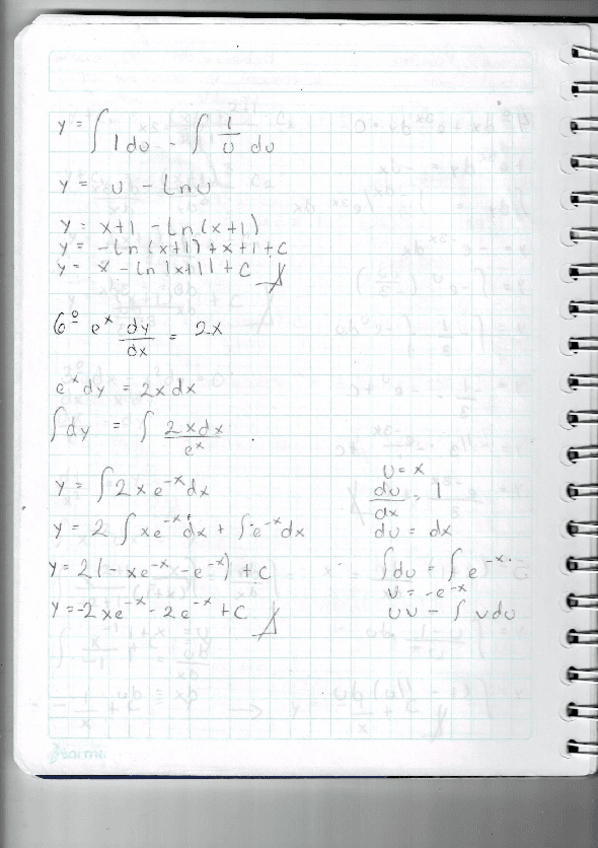 y = ∫ 1 du - ∫ 1/u du
y = u - Ln u
y = x+1 - Ln(x+1)
y = -Ln(x+1)+x+1+C
y = x - Ln|x+1|+C
6º e^x dy/dx = 2x
e^x dy = 2x dx
∫dy = ∫ 2xdx/e^x
y = ∫2xe^-x dx
y = 2∫xe^-x dx + ∫e^-x dx
y = 2(-xe^-x - e^-x) + C
y = -2xe^-x - 2e^-x + C
u = x
du/dx = 1
du = dx
∫dv = ∫e^-x
v = -e^-x
uv - ∫vdu